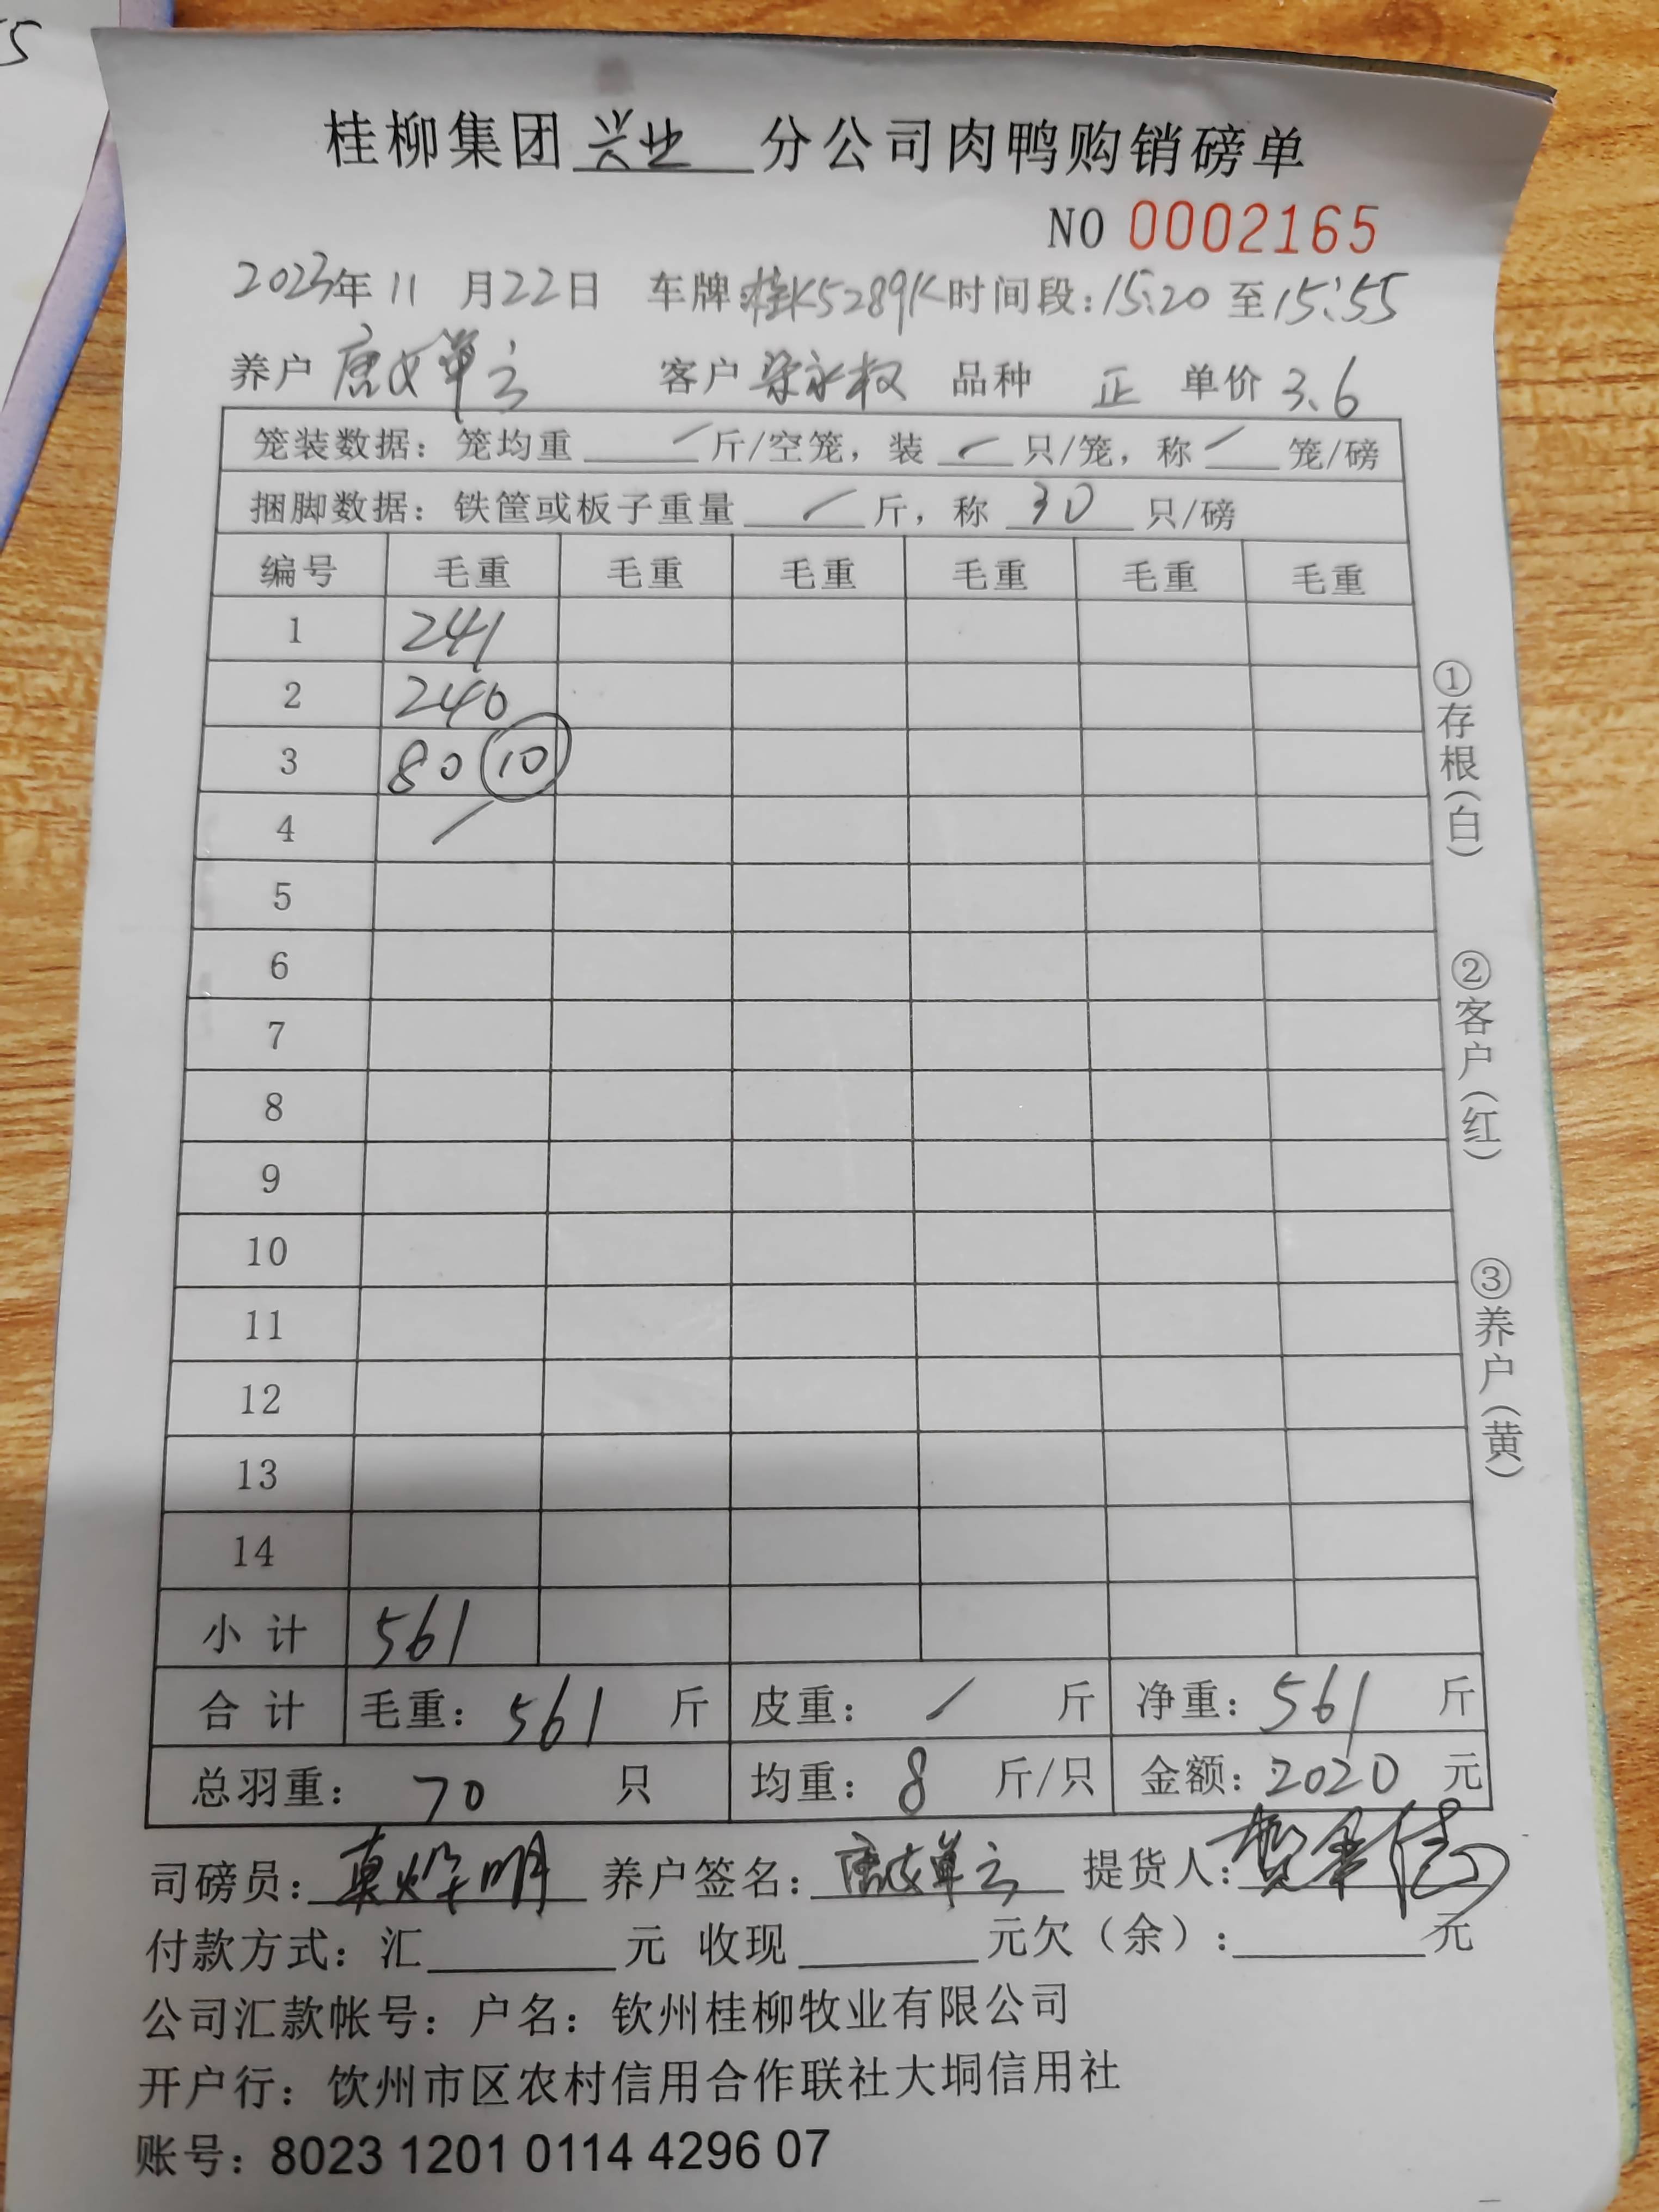 5
桂柳集团兴业分公司肉鸭购销磅单
NO 0002165
2023年11月22日 车牌桂K5289K时间段:15:20至15:55
养户 唐 云 客户 梁永权 品种 正 单价 3.6
笼装数据：笼均重 / 斤/空笼，装 / 只/笼，称 / 笼/磅
捆脚数据：铁筐或板子重量 / 斤，称 30 只/磅
编号 毛重 毛重 毛重 毛重 毛重 毛重
1 241
2 240
3 80 10
4 /
5
6
7
8
9
10
11
12
13
14
小计 561
合计 毛重：561 斤 皮重： / 斤 净重：561 斤
总羽重：70 只 均重：8 斤/只 金额：2020 元
司磅员：莫烨明 养户签名：唐 云 提货人：
付款方式：汇 元 收现 元欠（余）： 元
公司汇款帐号：户名：钦州桂柳牧业有限公司
开户行：钦州市区农村信用合作联社大垌信用社
账号：8023 1201 0114 4296 07
①存根（白）
②客户（红）
③养户（黄）